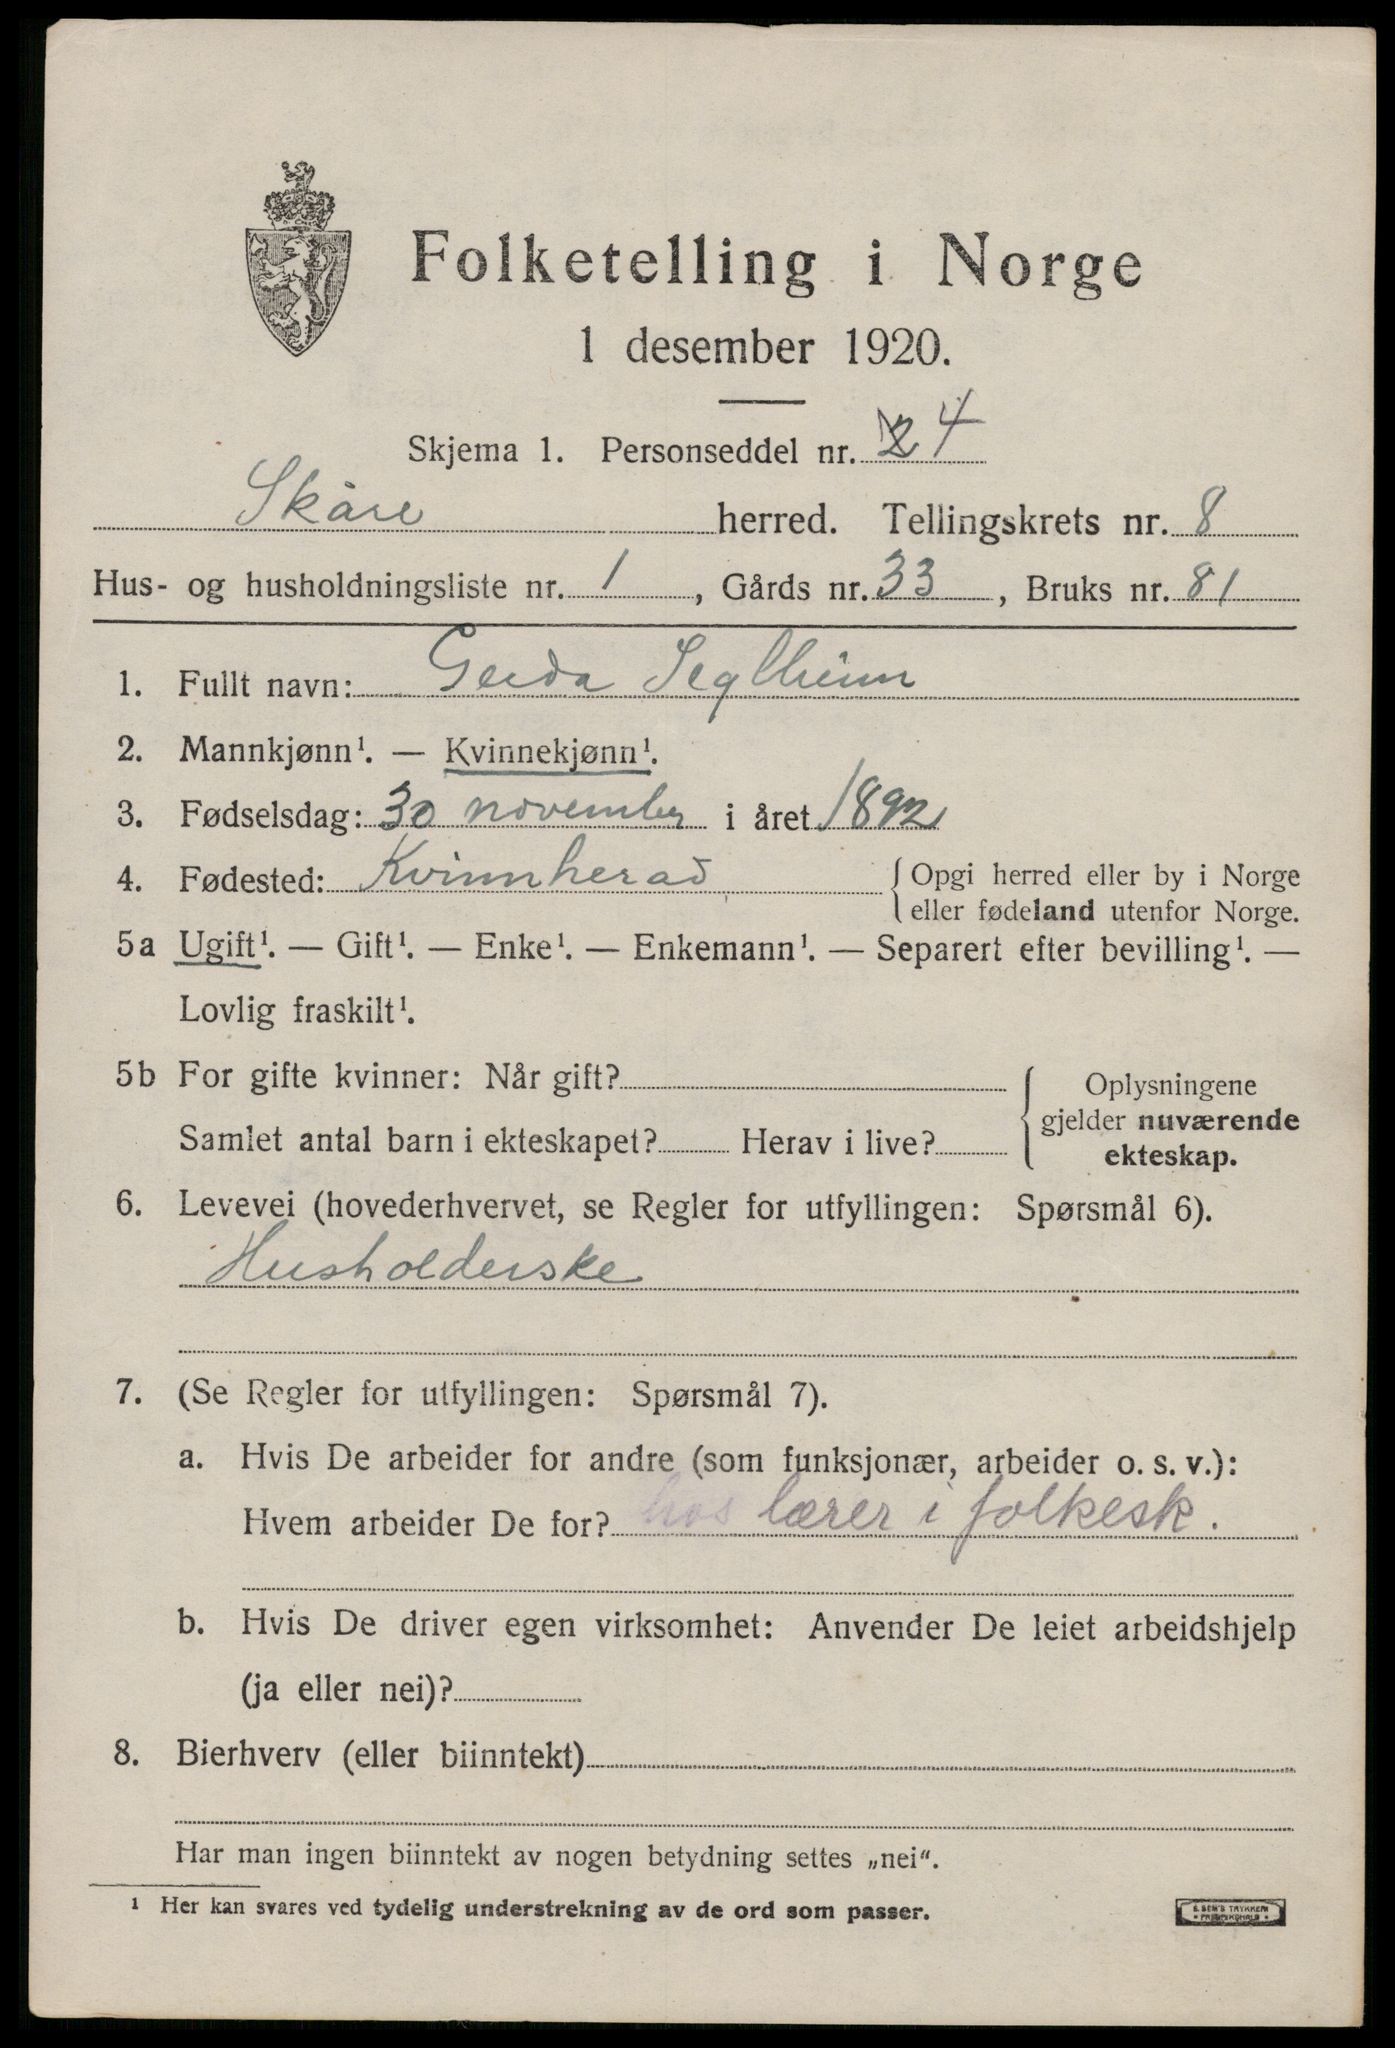 Folketelling i Norge
1 desember 1920.
Skjema 1. Personseddel nr. 4
Skåre herred. Tellingskrets nr. 8
Hus- og husholdningsliste nr. 1, Gårds nr. 33, Bruks nr. 81
1. Fullt navn: Gerda Seglheim
2. Mannkjønn¹. — Kvinnekjønn¹.
3. Fødselsdag: 30 november i året 1892
4. Fødested: Kvinnherad { Opgi herred eller by i Norge
eller fødeland utenfor Norge.
5a Ugift¹. — Gift¹. — Enke¹. — Enkemann¹. — Separert efter bevilling¹. —
Lovlig fraskilt¹.
5b For gifte kvinner: Når gift? { Oplysningene
gjelder nuværende
Samlet antal barn i ekteskapet? Herav i live? ekteskap.
6. Levevei (hovederhvervet, se Regler for utfyllingen: Spørsmål 6).
Husholderske
7. (Se Regler for utfyllingen: Spørsmål 7).
a. Hvis De arbeider for andre (som funksjonær, arbeider o. s. v.):
Hvem arbeider De for? hos lærer i folkesk.
b. Hvis De driver egen virksomhet: Anvender De leiet arbeidshjelp
(ja eller nei)?
8. Bierhverv (eller biinntekt)
Har man ingen biinntekt av nogen betydning settes „nei“.
¹ Her kan svares ved tydelig understrekning av de ord som passer.